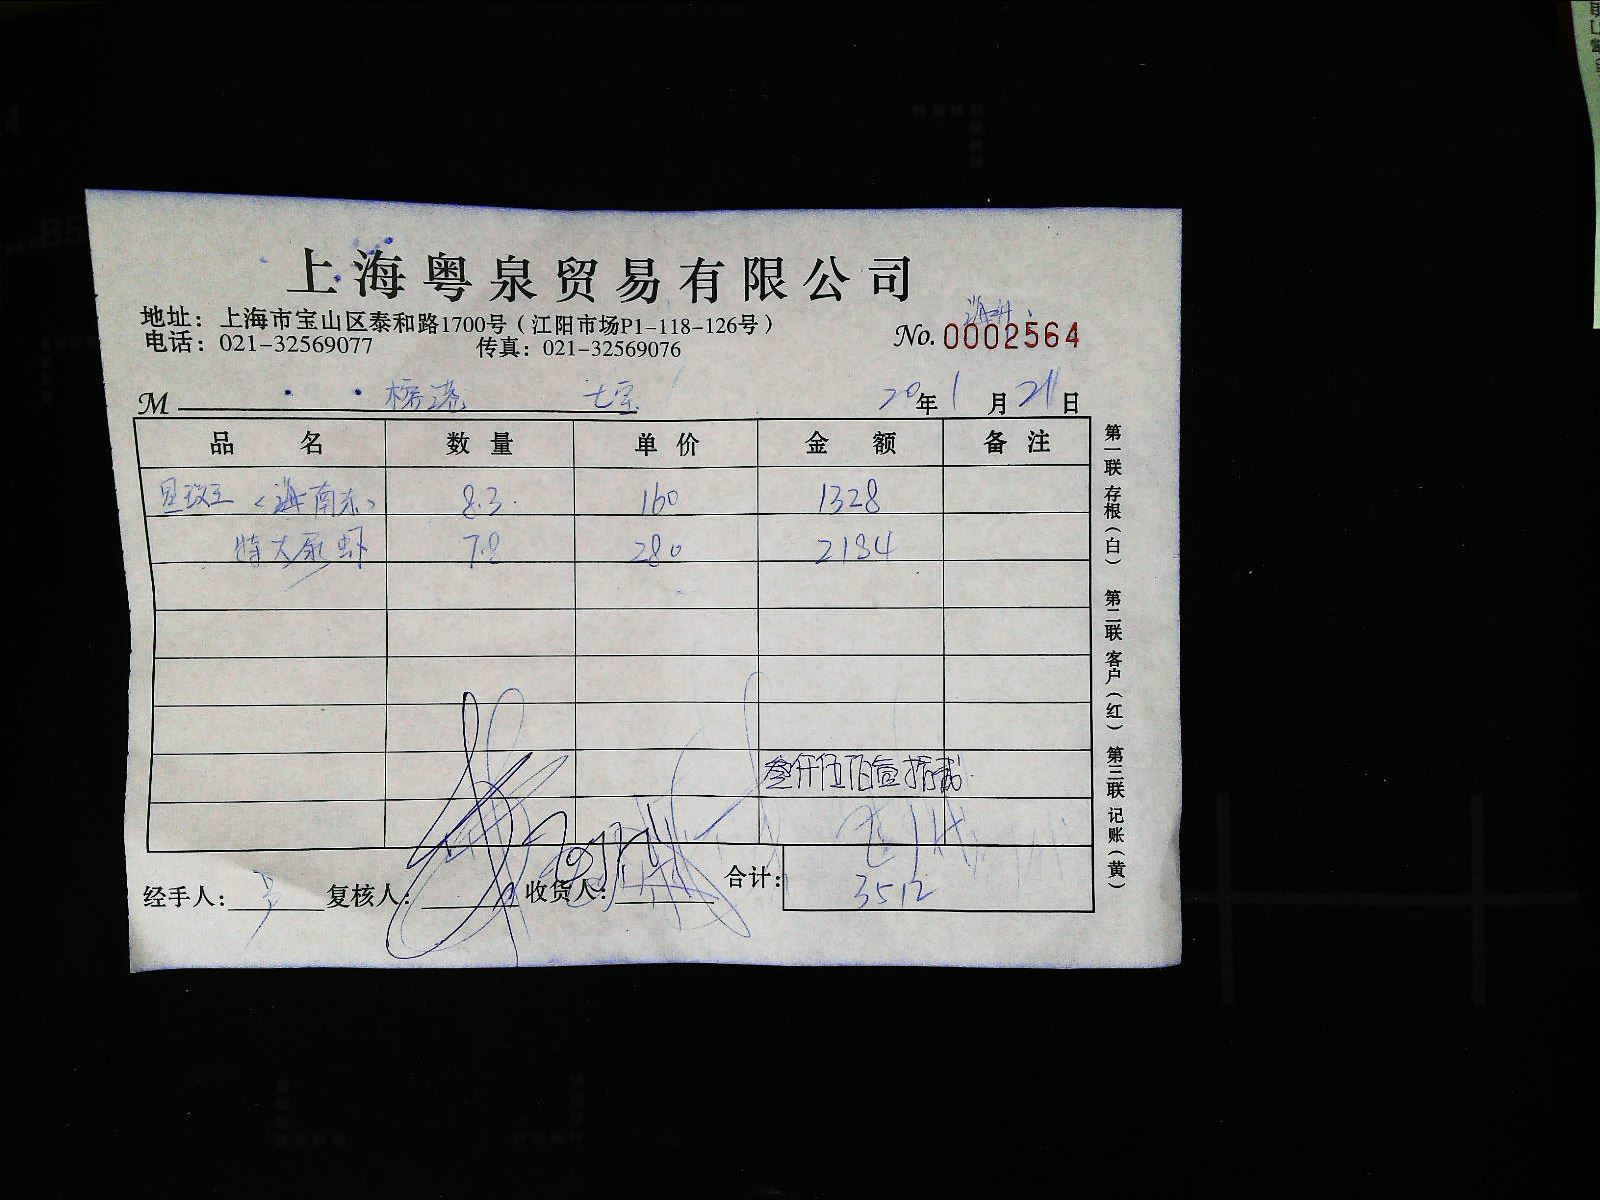 上海粤泉贸易有限公司
地址：上海市宝山区泰和路1700号（江阳市场P1-118-126号）
No. 0002564
电话：021-32569077 传真：021-32569076
M 七宝 20年1月21日
品名 数量 单价 金额 备注
（海南东） 8.3 160 1328
特大 虾 7.8 280 2184
叁仟伍佰壹拾贰
经手人： 复核人： 收货人： 合计： 3512
第一联 存根（白） 第二联 客户（红） 第三联 记账（黄）